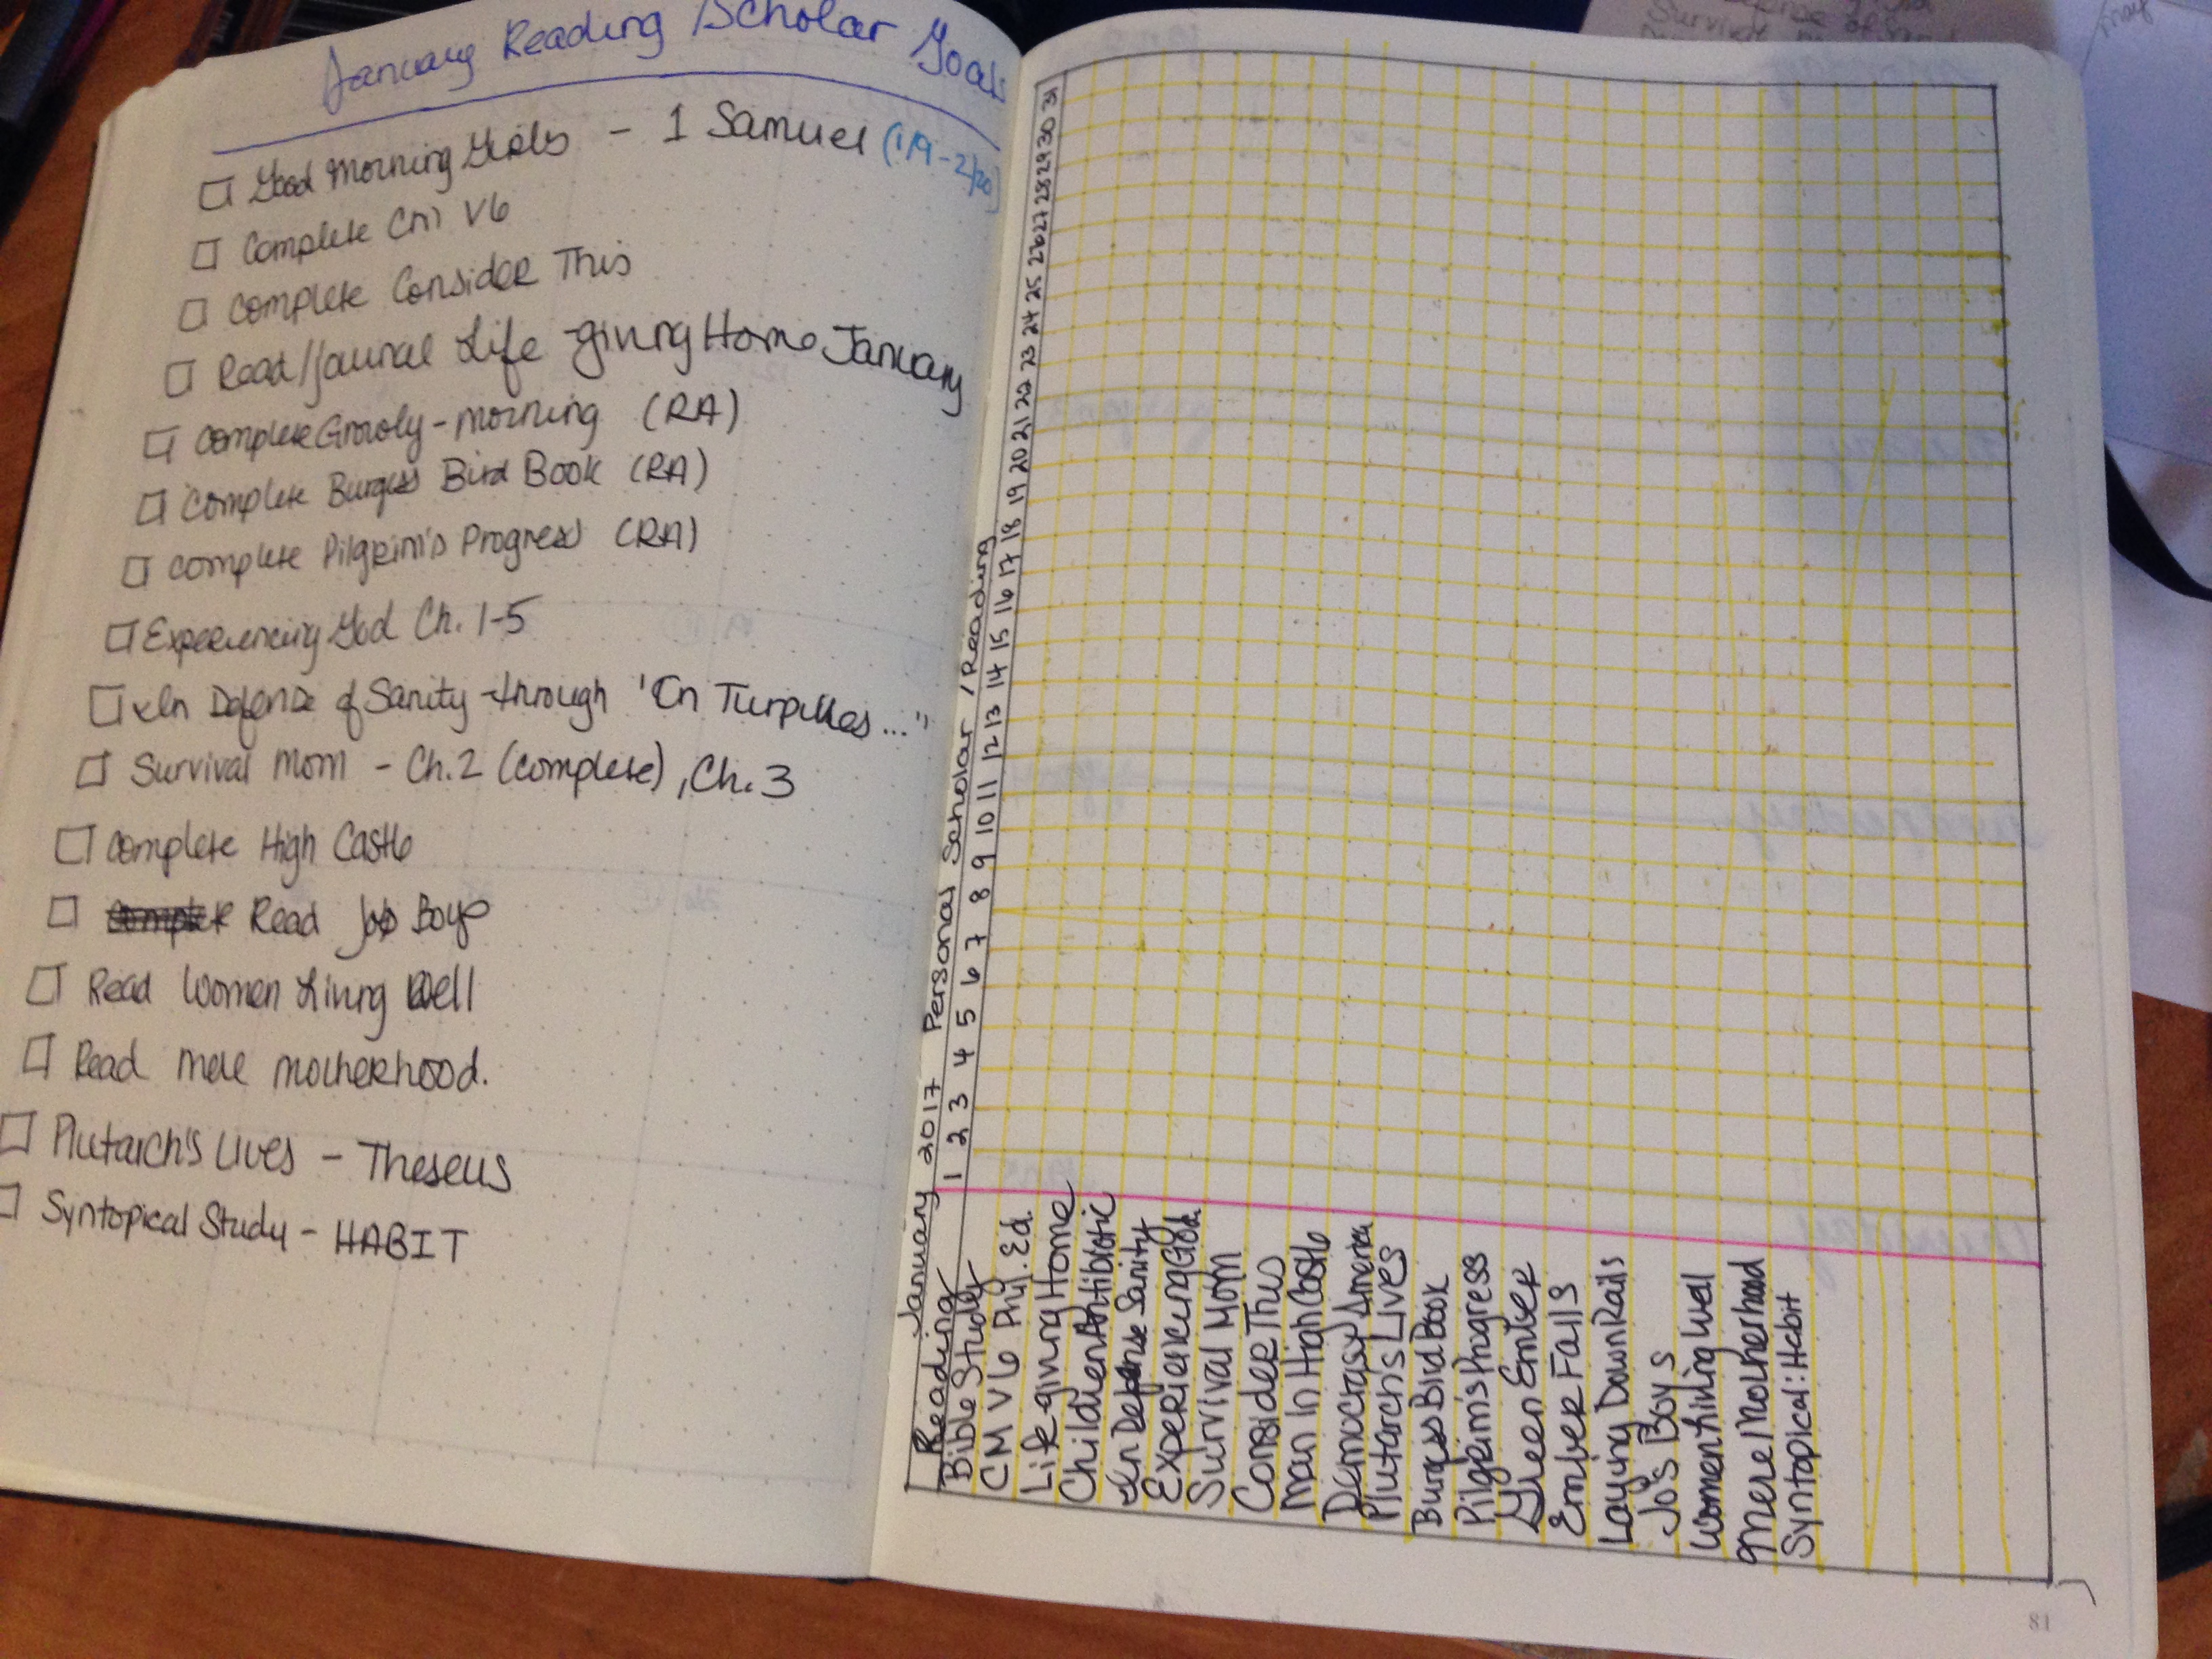 January Reading/Scholar Goals
Good Morning Girls - 1 Samuel (1/9-2/20)
Complete CM V6
Complete Consider This
Read/journal Life-giving Home January
Complete Growly-morning (RA)
Complete Burgess Bird Book (RA)
Complete Pilgrim's Progress (RA)
Experiencing God Ch. 1-5
In Defense of Sanity - through "On Turpitudes..."
Survival Mom - Ch. 2 (complete), Ch. 3
Complete High Castle
Read Jo's Boys
Read Women Living Well
Read Mere Motherhood.
Plutarch's Lives - Theseus
Syntopical Study - HABIT
January 2017 Personal Scholar/Reading
Reading 1 2 3 4 5 6 7 8 9 10 11 12 13 14 15 16 17 18 19 20 21 22 23 24 25 26 27 28 29 30 31
Bible Study
CM V6 Phil. Ed.
Life-giving Home
Children Antibiotic
In Defense Sanity
Experiencing God
Survival Mom
Consider This
Man In High Castle
Democracy America
Plutarch's Lives
Burgess Bird Book
Pilgrim's Progress
Green Ember
Ember Falls
Laying Down Rails
Jo's Boys
Women Living Well
Mere Motherhood
Syntopical: Habit
81